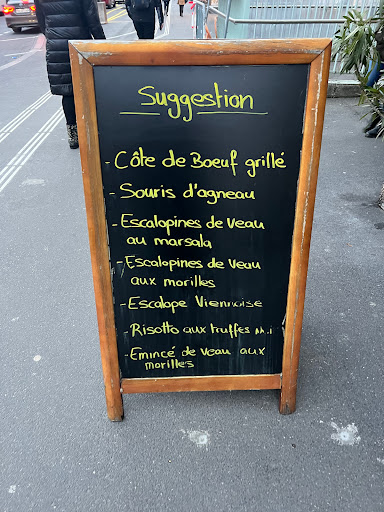 Suggestion
- Côte de Boeuf grillé
- Souris d'agneau
- Escalopines de veau
au marsala
- Escalopines de veau
aux morilles
- Escalope Viennoise
- Risotto aux truffes
- Emincé de veau aux
morilles